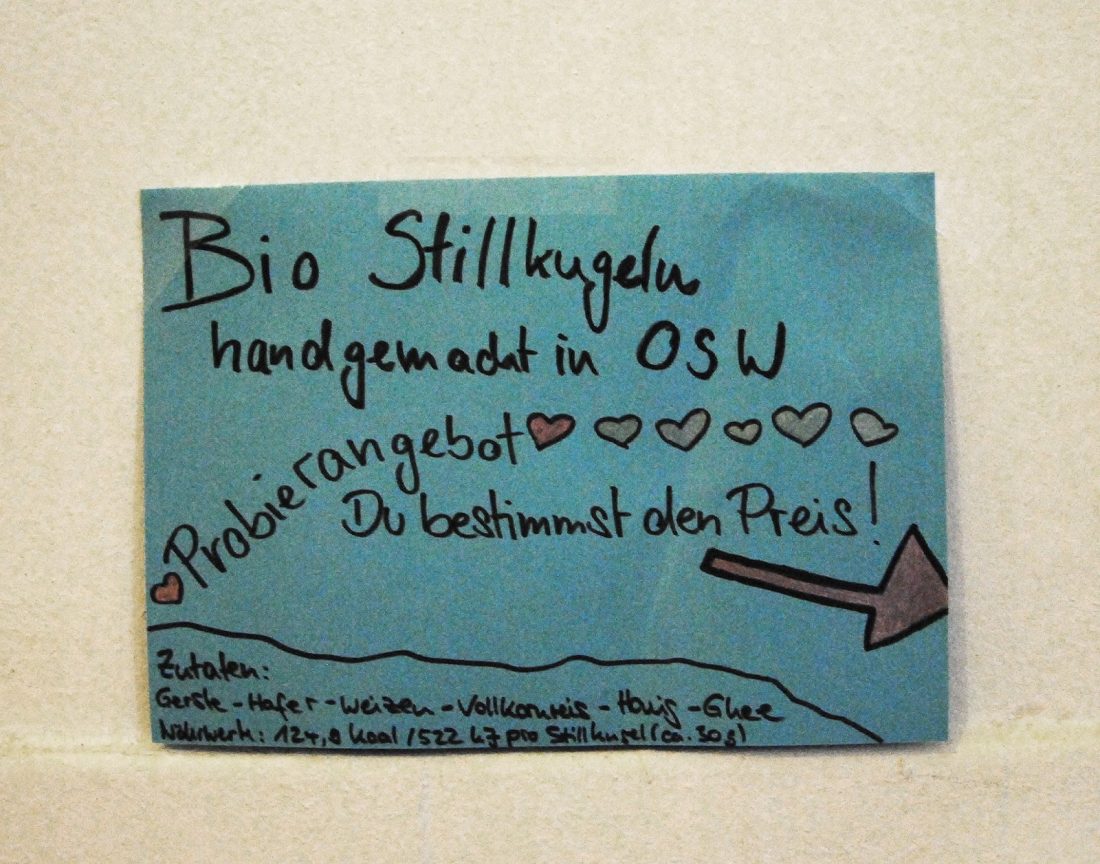 Bio Stillkugeln
handgemacht in OSW
Probierangebot
Du bestimmst den Preis!
Zutaten:
Gerste - Hafer - Weizen - Vollkornreis - Honig - Ghee
Nährwerte: 124,8 kcal / 522 kJ pro Stillkugel (ca. 30g)